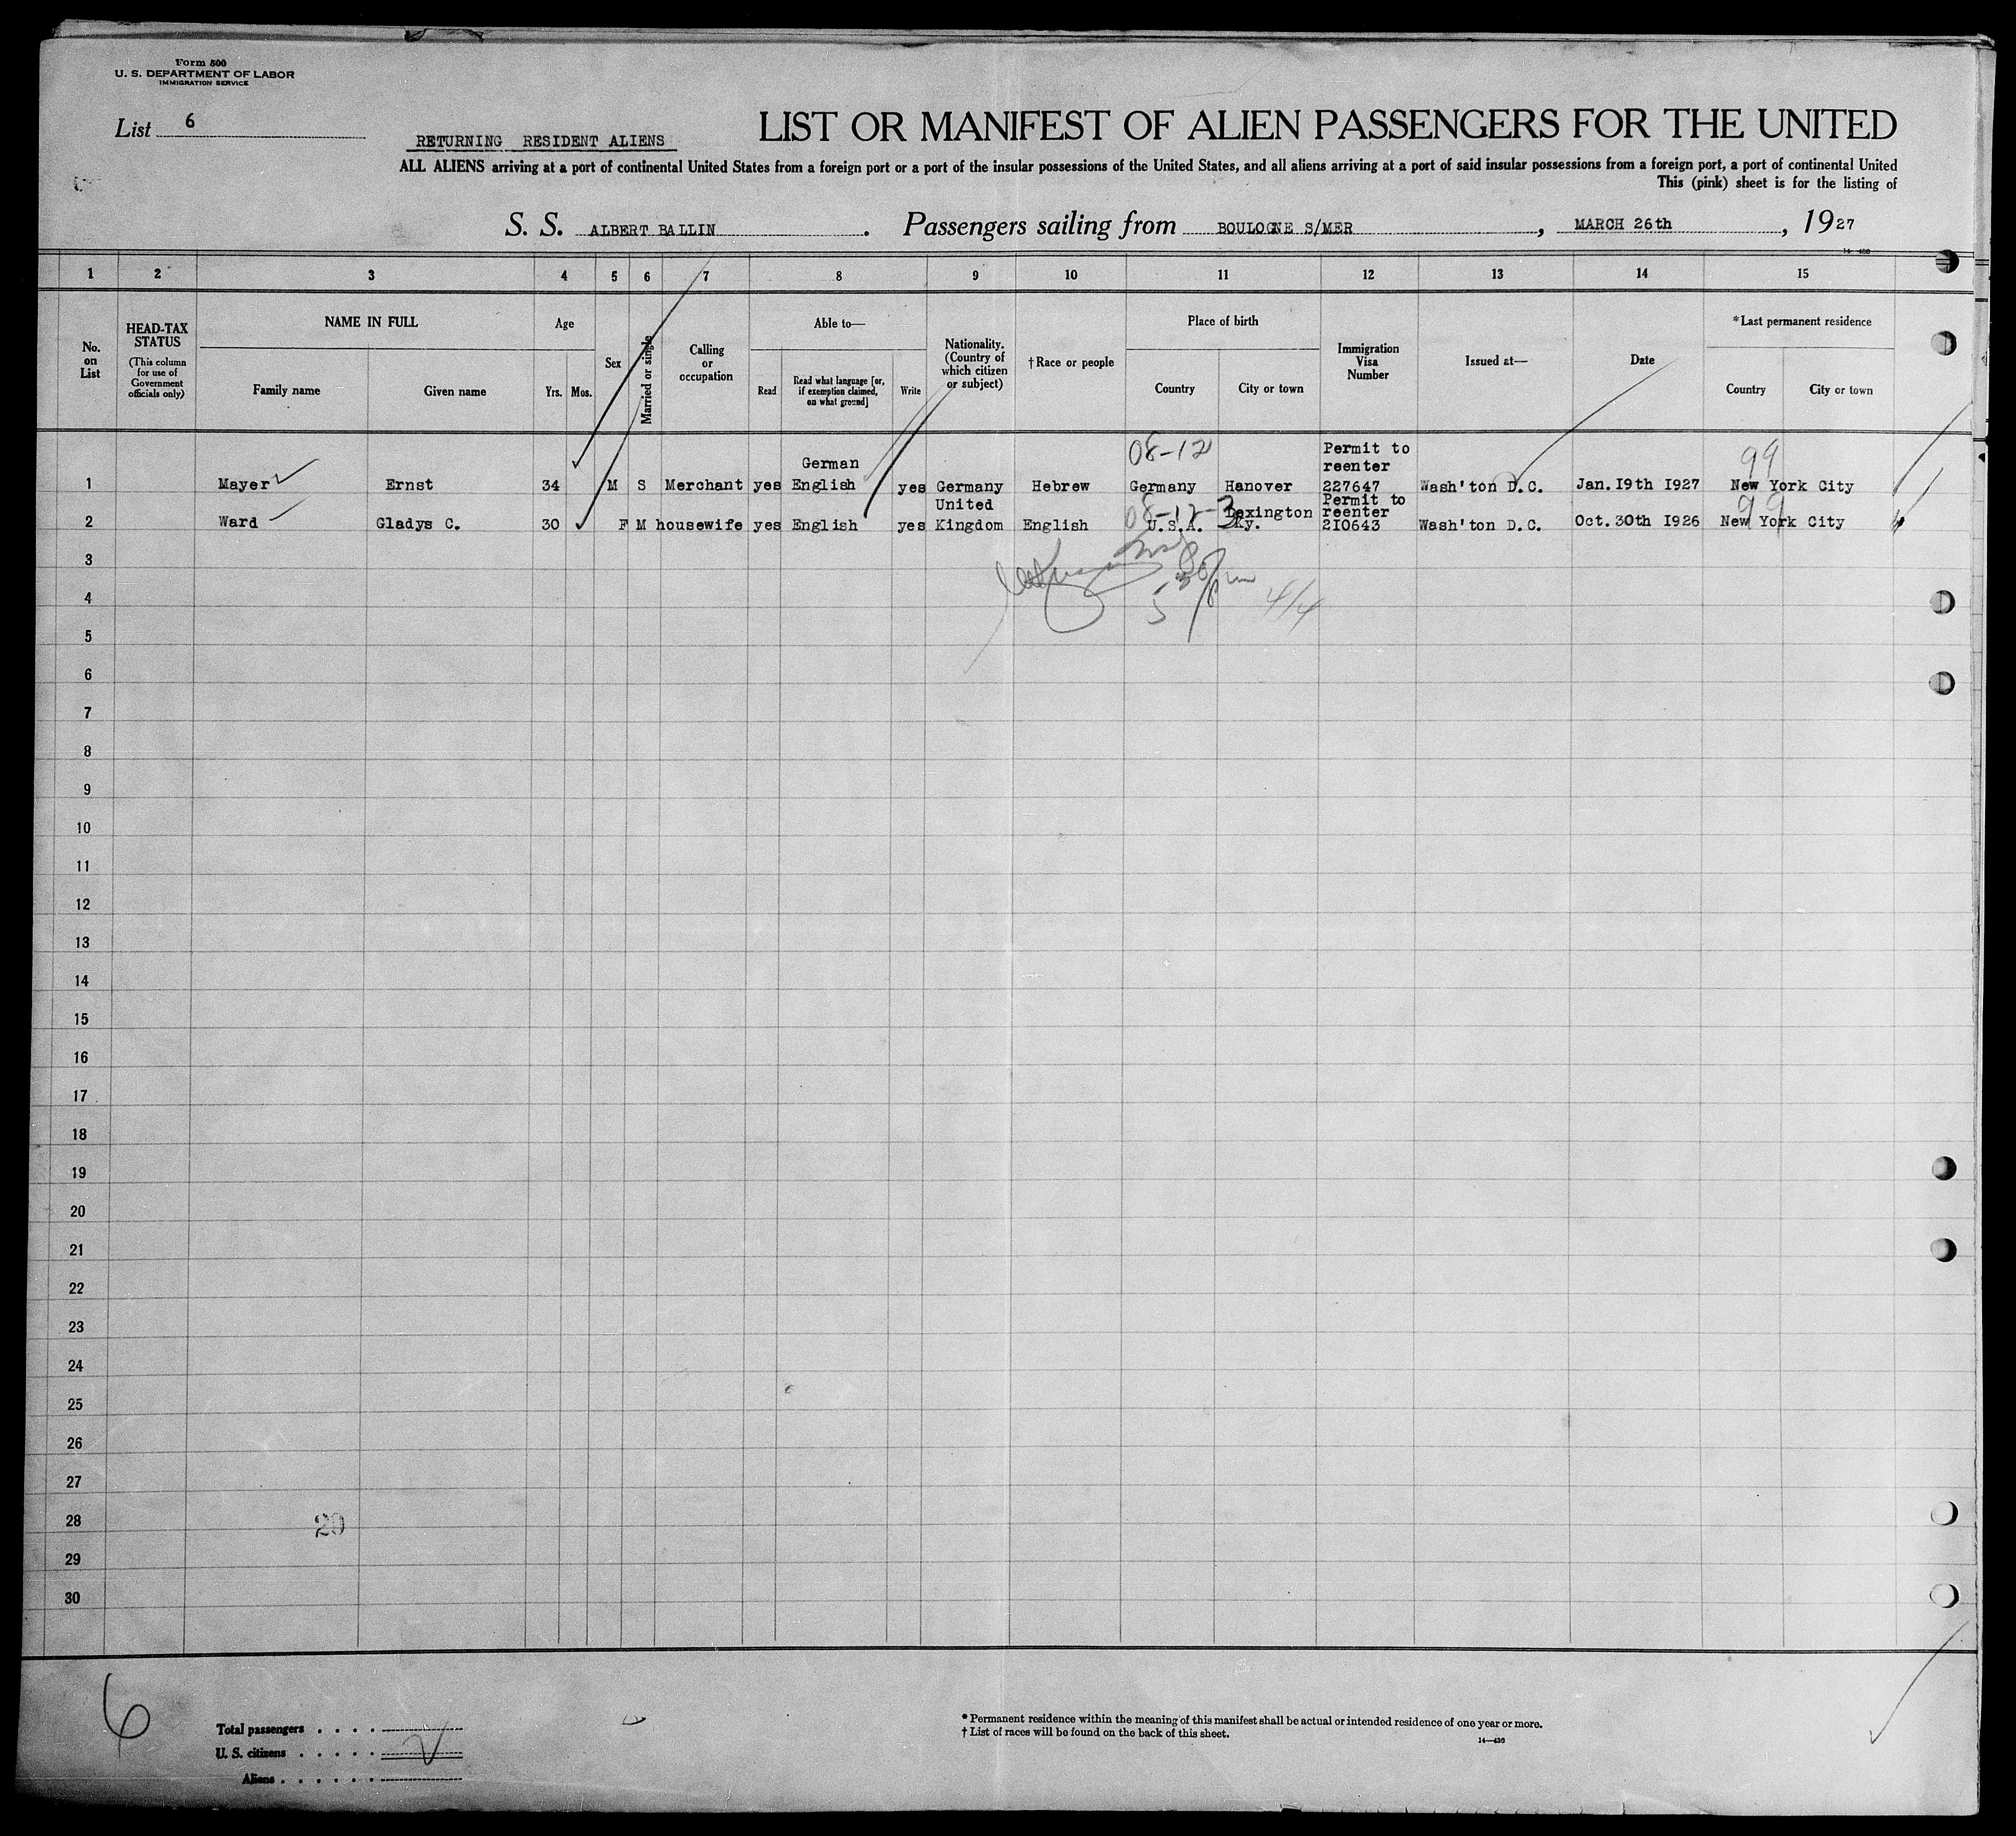 Form 500
U. S. DEPARTMENT OF LABOR
IMMIGRATION SERVICE
List 6
RETURNING RESIDENT ALIENS
LIST OR MANIFEST OF ALIEN PASSENGERS FOR THE UNITED
ALL ALIENS arriving at a port of continental United States from a foreign port or a port of the insular possessions of the United States, and all aliens arriving at a port of said insular possessions from a foreign port, a port of continental United
This (pink) sheet is for the listing of
S. S. ALBERT BALLIN . Passengers sailing from BOULOGNE S/MER , MARCH 26th , 1927
1 2 3 4 5 6 7 8 9 10 11 12 13 14 15
No. on List
HEAD-TAX STATUS
(This column for use of Government officials only)
NAME IN FULL
Family name Given name
Age
Yrs. Mos.
Sex
Married or single
Calling or occupation
Able to—
Read
Read what language [or, if exemption claimed, on what ground]
Write
Nationality. (Country of which citizen or subject)
† Race or people
Place of birth
Country City or town
Immigration Visa Number
Issued at—
Date
*Last permanent residence
Country City or town
08-12 Permit to
German reenter 99
1 Mayer Ernst 34 M S Merchant yes English yes Germany Hebrew Germany Hanover 227647 Wash'ton D.C. Jan. I9th I927 New York City
United Permit to
08-12-3 Lexington reenter 99
2 Ward Gladys C. 30 F M housewife yes English yes Kingdom English U.S.A. Ky. 2I0643 Wash'ton D.C. Oct. 30th I926 New York City
3
4 5 30 pm 4/4
5
6
7
8
9
10
11
12
13
14
15
16
17
18
19
20
21
22
23
24
25
26
27
28 20
29
30
6
Total passengers
U. S. citizens
Aliens
* Permanent residence within the meaning of this manifest shall be actual or intended residence of one year or more.
† List of races will be found on the back of this sheet.
14—430